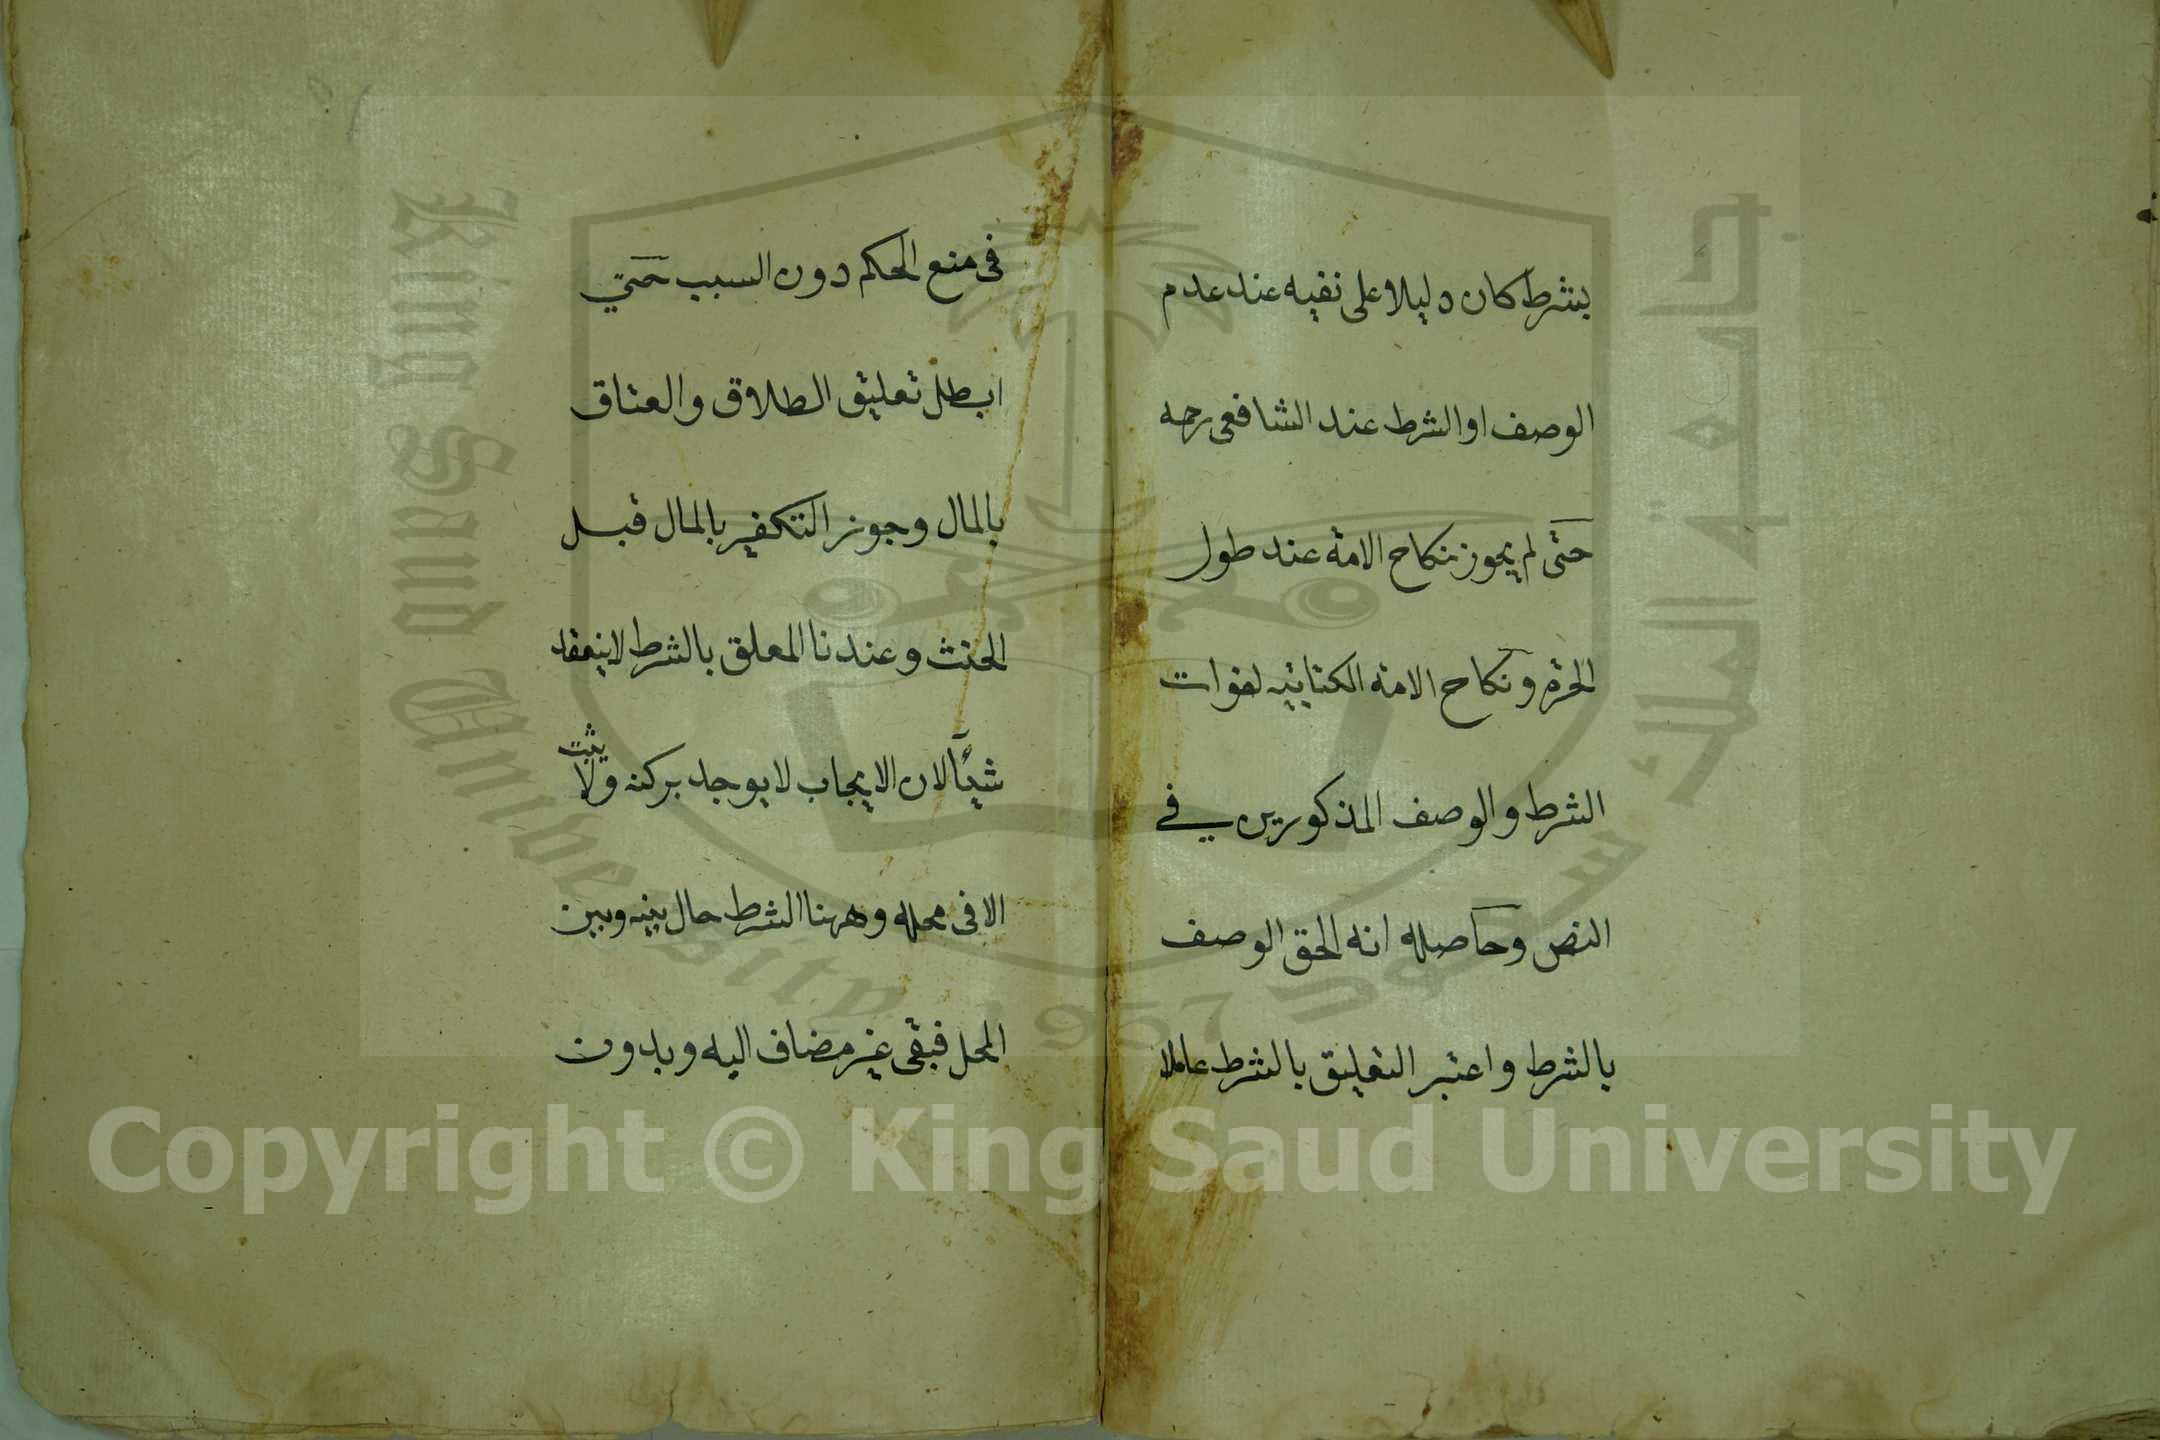 بشرط كان دليلا على نفيه عند عدم
الوصف او الشرط عند الشافعى رحمه
حتى لم يجوز نكاح الامة عند طول
الحرة و نكاح الامة الكتابيه لفوات
الشرط والوصف المذكورين في
النص وحاصله انه الحق الوصف
بالشرط واعتبر التعليق بالشرط عاملا
فى منع الحكم دون السبب حتي
ابطل تعليق الطلاق والعتاق
بالمال وجوز التكفير بالمال قبل
الحنث وعندنا المعلق بالشرط لاينعقد
شيأ لان الايجاب لايوجد بركنه ولا يثبت
الا فى محله وههنا الشرط حال بينه وبين
المحل فبقى غير مضاف اليه وبدون
King Saud University
جامعة الملك سعود
1957
Copyright © King Saud University